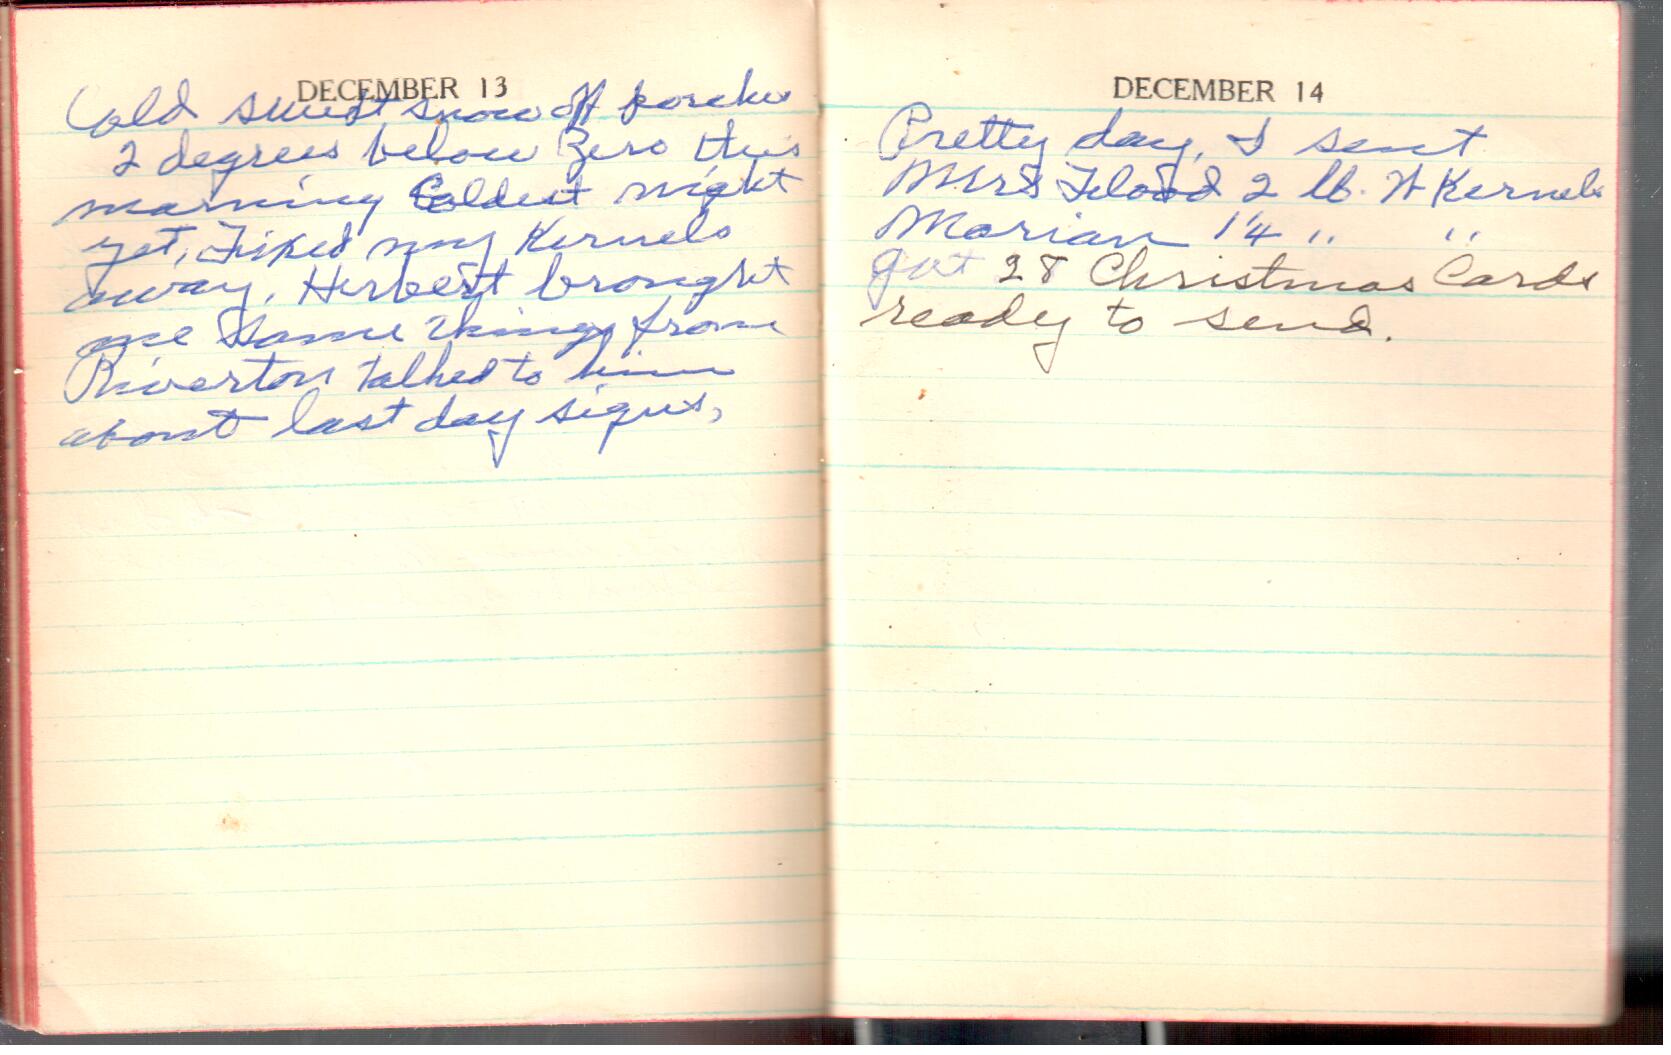 DECEMBER 13
Cold swept snow off porches
2 degrees below Zero this
morning Coldest night
yet, Fixed my Kernels
away, Herbert brought
me some things from
Riverton Talked to him
about last day signs,
DECEMBER 14
Pretty day, I sent
Mrs Flood 2 lb. W Kernels
Marian 1 4 " "
got 28 Christmas Cards
ready to send.